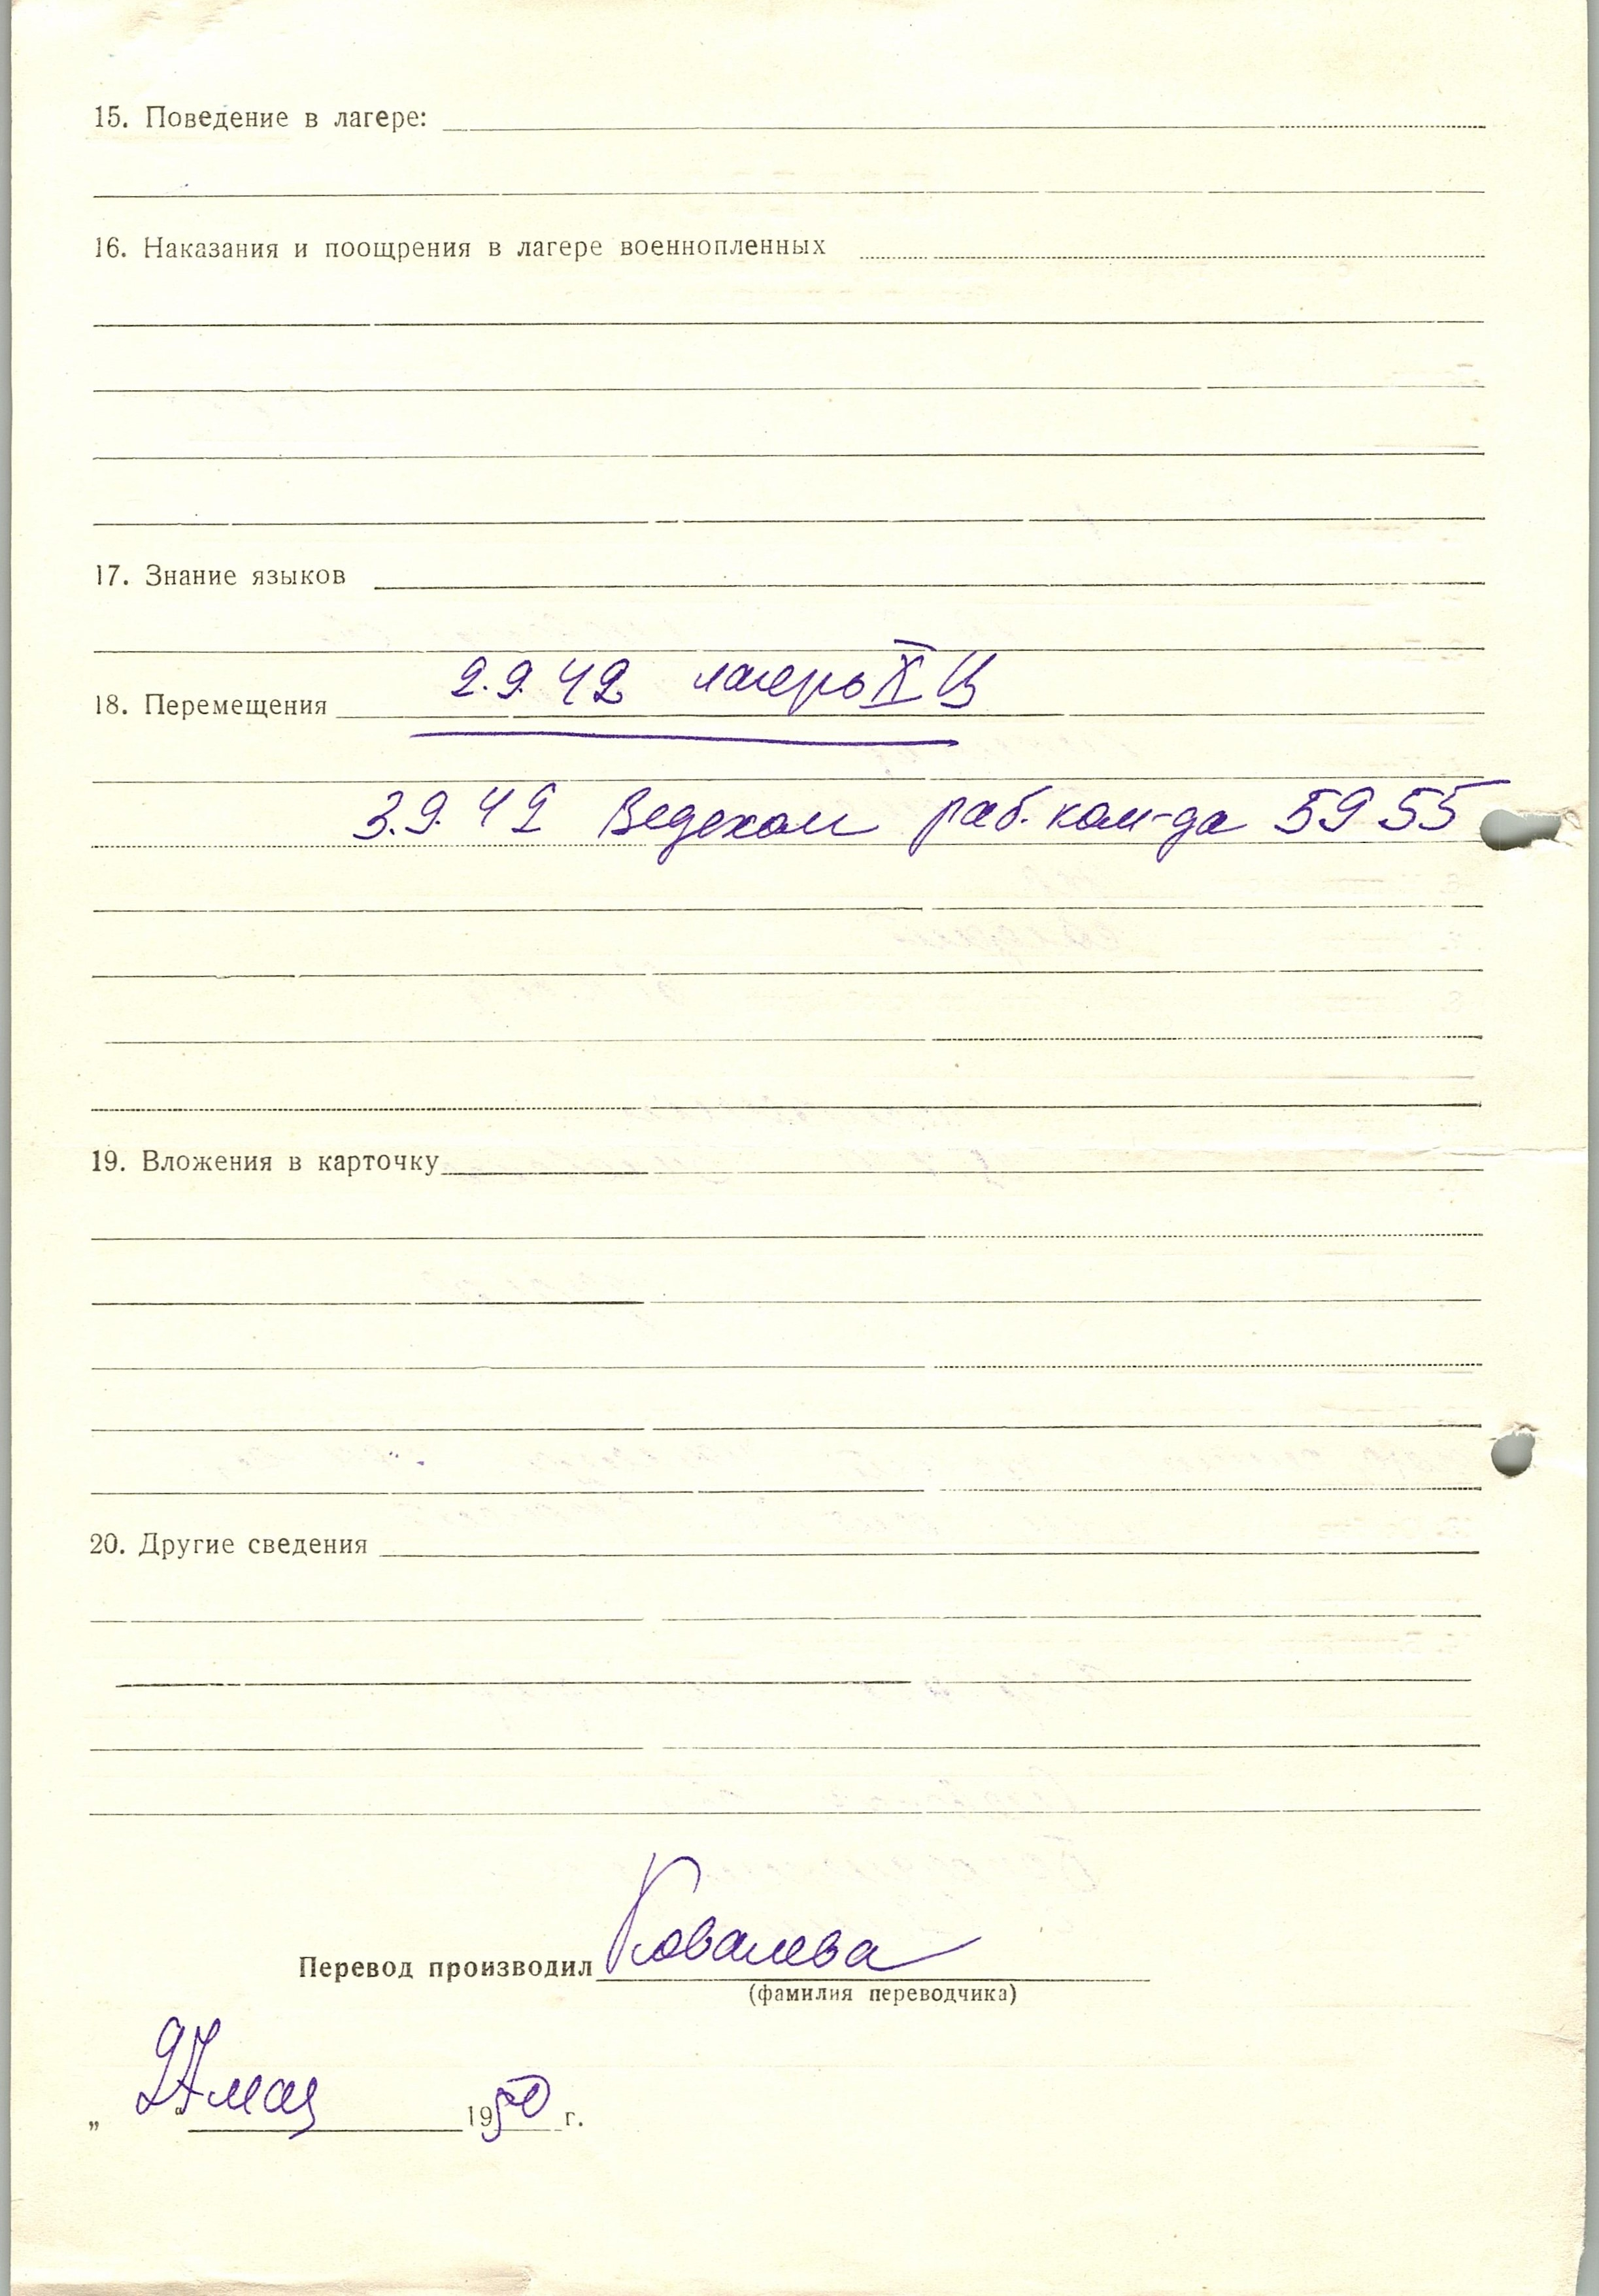 15. Поведение в лагере:
16. Наказания и поощрения в лагере военнопленных
17. Знание языков
18. Перемещения 2.9.42 лагерь X Ц
3.9.42 Ведехом раб. ком-да 5955
19. Вложения в карточку
20. Другие сведения
Перевод производил Ковалева
(фамилия переводчика)
„ 27 мая 1950 г.